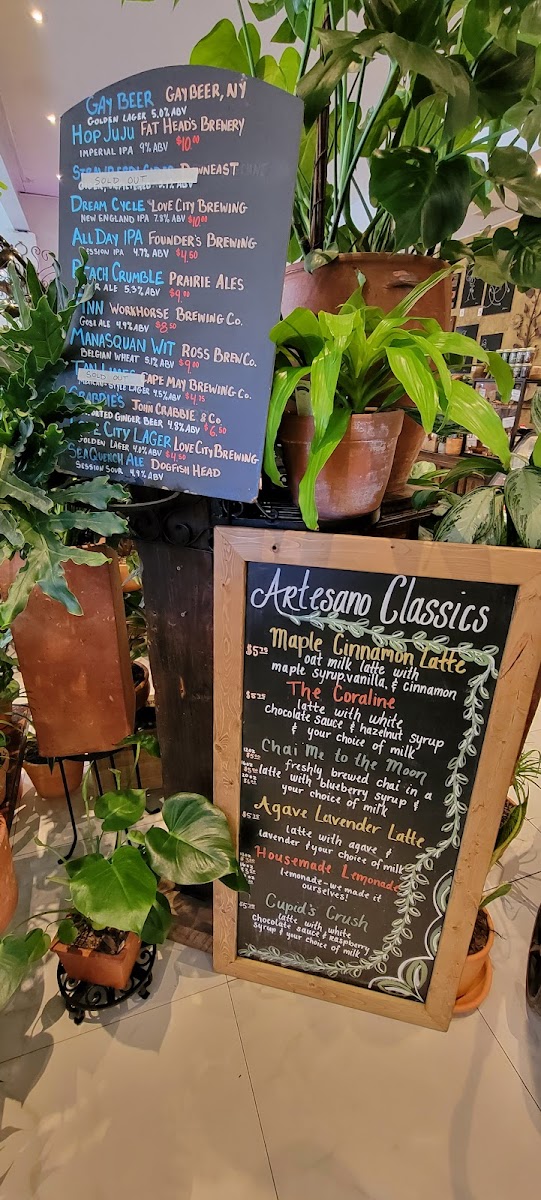 GAY BEER GAYBEER, NY
GOLDEN LAGER 5.0% ABV
HOP JUJU FAT HEAD'S BREWERY
IMPERIAL IPA 9% ABV $10.00
DOWNEAST
SOLD OUT
DREAM CYCLE LOVE CITY BREWING
NEW ENGLAND IPA 7.3% ABV $10.00
ALL DAY IPA FOUNDER'S BREWING
SESSION IPA 4.7% ABV $4.50
PEACH CRUMBLE PRAIRIE ALES
R ALE 5.3% ABV $9.00
INN WORKHORSE BREWING CO.
GOSE ALE 4.9% ABV $8.50
MANASQUAN WIT ROSS BREW CO.
BELGIAN WHEAT 5.1% ABV $9.00
SOLD OUT CAPE MAY BREWING CO.
STYLE LAGER 4.5% ABV $4.75
CRABBIE'S JOHN CRABBIE & CO
GINGER BEER 4.8% ABV $6.50
CITY LAGER LOVE CITY BREWING
GOLDEN LAGER 4.8% ABV $4.50
SEAQUENCH ALE DOGFISH HEAD
SESSION SOUR 4.9% ABV
Artesano Classics
Maple Cinnamon Latte
$5.25 oat milk latte with
maple syrup, vanilla, & cinnamon
$5.25 The Coraline
latte with white
chocolate sauce & hazelnut syrup
& your choice of milk
Chai Me to the Moon
freshly brewed chai in a
latte with blueberry syrup &
your choice of milk
Agave Lavender Latte
$5.25 latte with agave &
lavender & your choice of milk
Housemade Lemonade
lemonade - we made it
ourselves!
Cupid's Crush
$5.25 latte with white
chocolate sauce & raspberry
syrup & your choice of milk